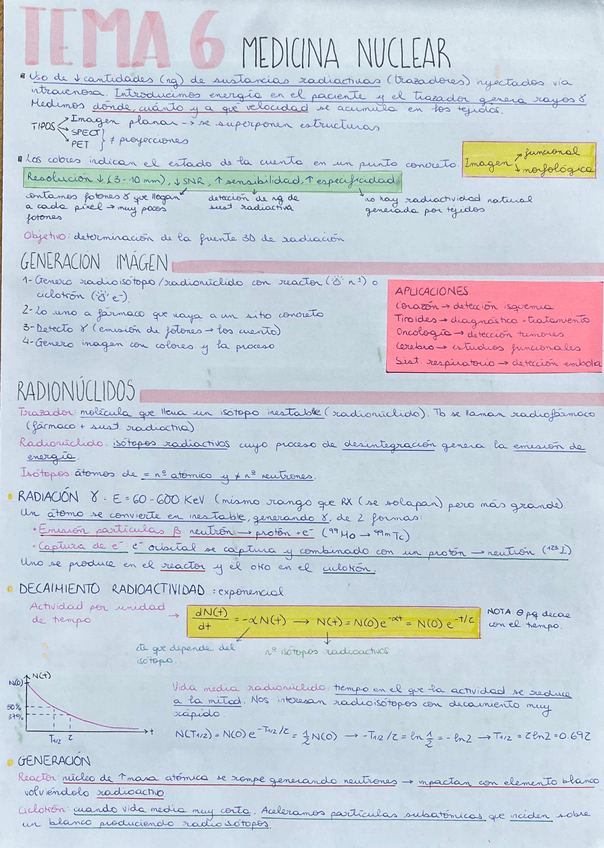 TEMA 6 MEDICINA NUCLEAR
Uso de ↓ cantidades (ng) de sustancias radiactivas (trazadores) inyectados vía
intravenosa. Introducimos energía en el paciente y el trazador genera rayos γ
Medimos dónde, cuánto y a qué velocidad se acumula en los tejidos.
TIPOS
Imagen planar → se superponen estructuras
SPECT
PET
≠ proyecciones
Los colores indican el estado de la cuenta en un punto concreto.
Imagen
funcional
↓ morfológica
Resolución ↓ (3-10 mm), ↓ SNR, ↑ sensibilidad, ↑ especificidad
contamos fotones γ que llegan
a cada pixel → muy pocos
fotones
detección de ng de
sust radiactiva
no hay radiactividad natural
generada por tejidos
Objetivo: determinación de la fuente 3D de radiación
GENERACION IMÁGEN
1- Genero radioisótopo/radionúclido con reactor ( n°) o
ciclotrón ( e⁻).
2- Lo uno a fármaco que vaya a un sitio concreto
3- Detecto γ (emisión de fotones → los cuento)
4- Genero imagen con colores y la proceso
APLICACIONES
Corazón → detección isquemia
Tiroides → diagnóstico + tratamiento
Oncología → detección tumores
Cerebro → estudios funcionales
Sist. respiratorio → detección embolia
RADIONÚCLIDOS
Trazador: molécula que lleva un isótopo inestable (radionúclido). Tb se llaman radiofármaco
(fármaco + sust radiactiva)
Radionúclido: isótopos radiactivos cuyo proceso de desintegración genera la emisión de
energía
Isótopos átomos de = nº atómico y ≠ nº neutrones.
RADIACIÓN γ. E = 60-600 KeV (mismo rango que RX (se solapan) pero más grande)
Un átomo se convierte en inestable, generando γ, de 2 formas:
· Emisión partículas β neutrón → protón + e⁻ (⁹⁹Mo → ⁹⁹ᵐTc)
· Captura de e⁻ e⁻ orbital se captura y combinado con un protón → neutrón (¹²³I)
Uno se produce en el reactor y el otro en el ciclotrón.
DECAIMIENTO RADIOACTIVIDAD: exponencial
Actividad por unidad
de tiempo
dN(t)/dt = -αN(t) → N(t) = N(0)e^-αt = N(0)e^-t/τ
NOTA: ⊖ pq decae
con el tiempo.
cte que depende del
isótopo
nº isótopos radioactivos
N(t)
N(0)
50%
37%
T1/2
τ
t
Vida media radionúclido: tiempo en el que la actividad se reduce
a la mitad. Nos interesan radioisótopos con decaimiento muy
rápido.
N(T1/2) = N(0)e^-T1/2/τ = 1/2 N(0) → -T1/2/τ = ln 1/2 = -ln2 → T1/2 = τln2 = 0.69τ
GENERACIÓN
Reactor núcleo de ↑ masa atómica se rompe generando neutrones → impactan con elemento blanco
volviéndolo radioactivo
Ciclotrón: cuando vida media muy corta. Aceleramos partículas subatómicas que inciden sobre
un blanco produciendo radioisótopos.